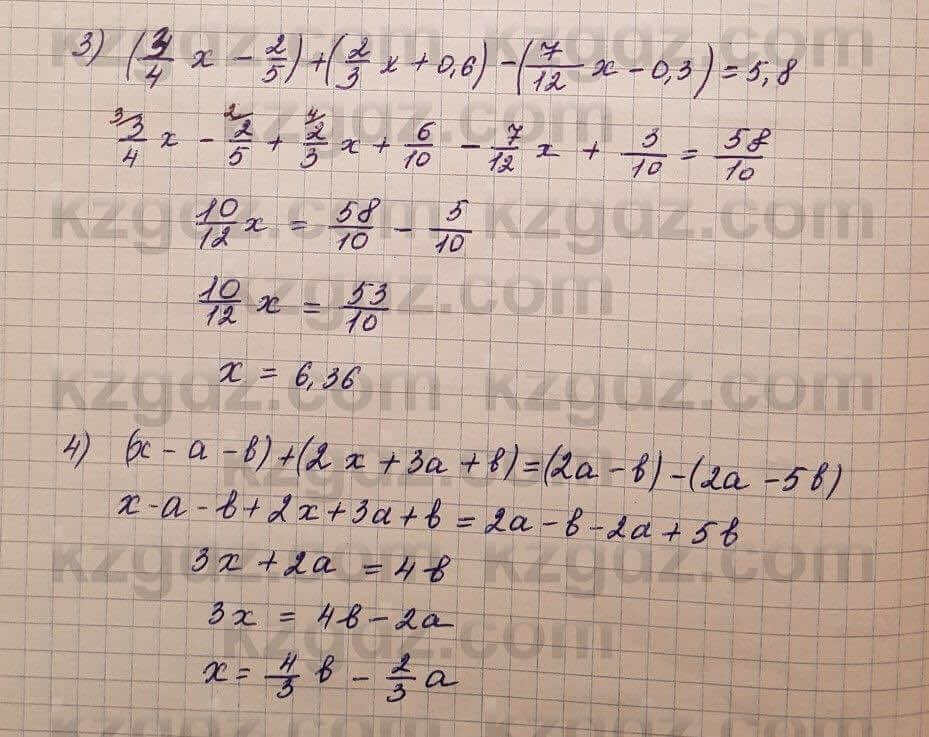 3) (3/4 x - 2/5) + (2/3 x + 0,6) - (7/12 x - 0,3) = 5,8
³3/4 x - ²2/5 + ⁴2/3 x + 6/10 - 7/12 x + 3/10 = 58/10
10/12 x = 58/10 - 5/10
10/12 x = 53/10
x = 6,36
4) (x - a - b) + (2x + 3a + b) = (2a - b) - (2a - 5b)
x - a - b + 2x + 3a + b = 2a - b - 2a + 5b
3x + 2a = 4b
3x = 4b - 2a
x = 4/3 b - 2/3 a
kzgdz.com